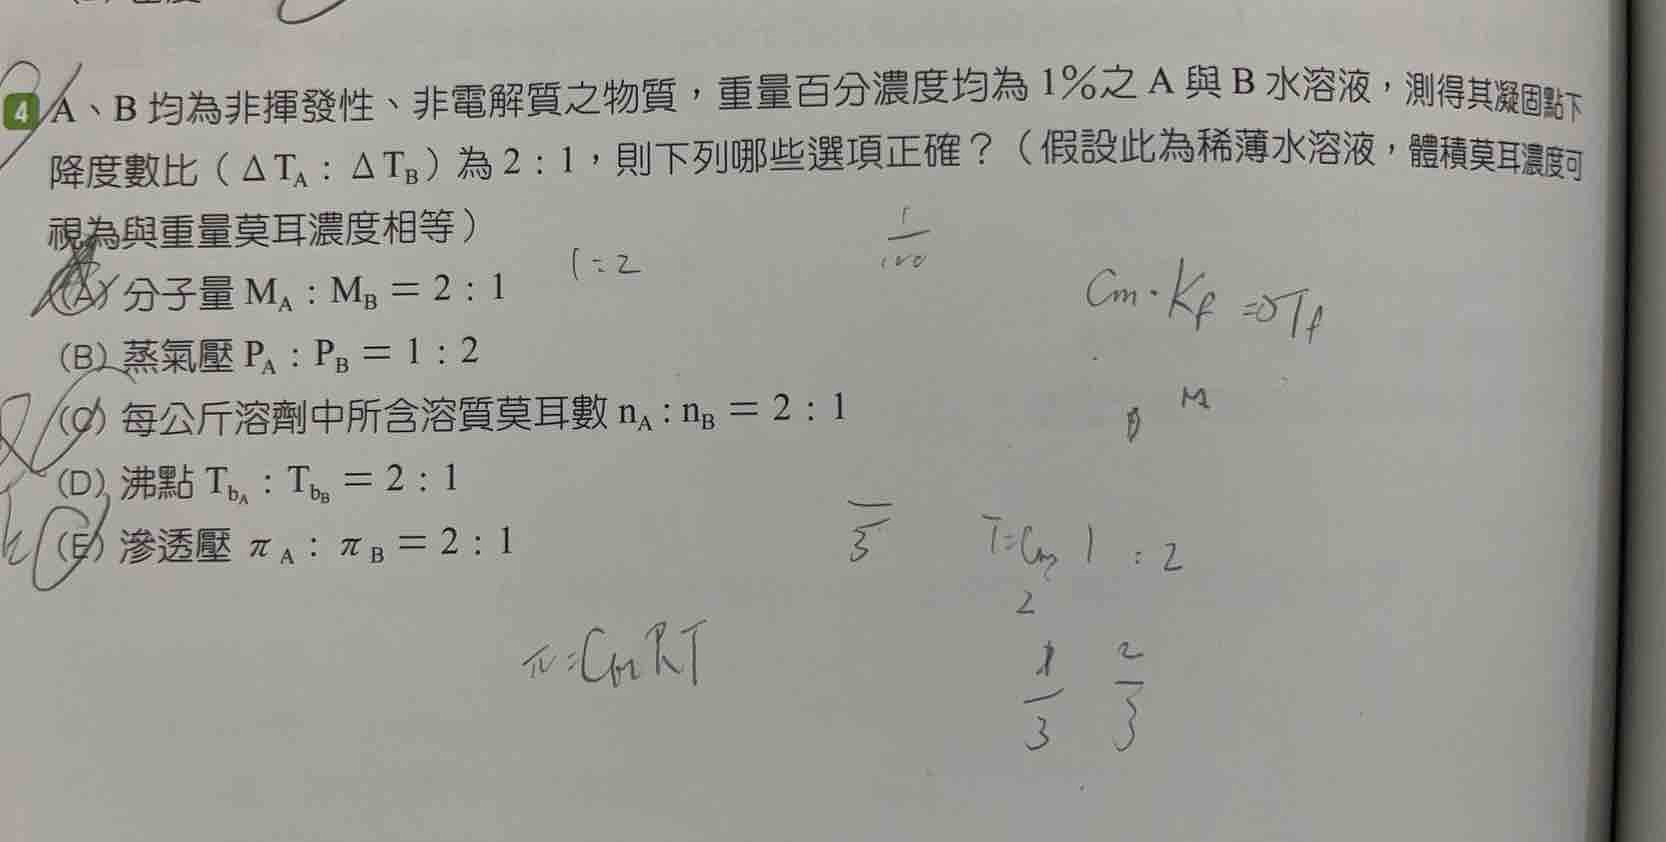 4 A、B 均為非揮發性、非電解質之物質,重量百分濃度均為 1%之 A 與 B 水溶液,測得其凝固點下
降度數比(ΔT_A:ΔT_B)為 2:1,則下列哪些選項正確?(假設此為稀薄水溶液,體積莫耳濃度可
視為與重量莫耳濃度相等)
1:2
1/100
(A) 分子量 M_A:M_B = 2:1
Cm·Kf=ΔTf
(B) 蒸氣壓 P_A:P_B = 1:2
M
(C) 每公斤溶劑中所含溶質莫耳數 n_A:n_B = 2:1
(D) 沸點 T_bA:T_bB = 2:1
(E) 滲透壓 π_A:π_B = 2:1
1:2
2
π=CmRT
1/3 2/3